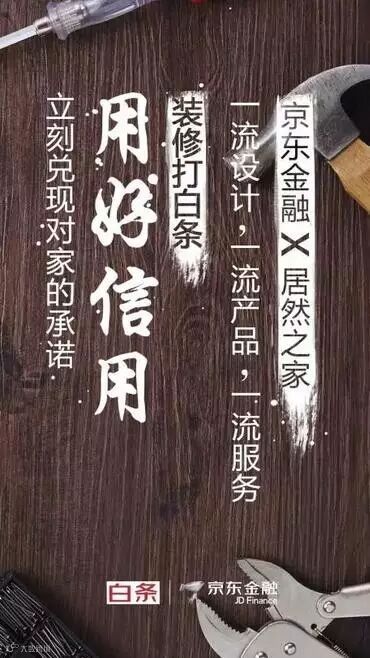 京东金融 X 居然之家
一流设计,一流产品,一流服务
装修打白条
用好信用
立刻兑现对家的承诺
白条
京东金融
JD Finance